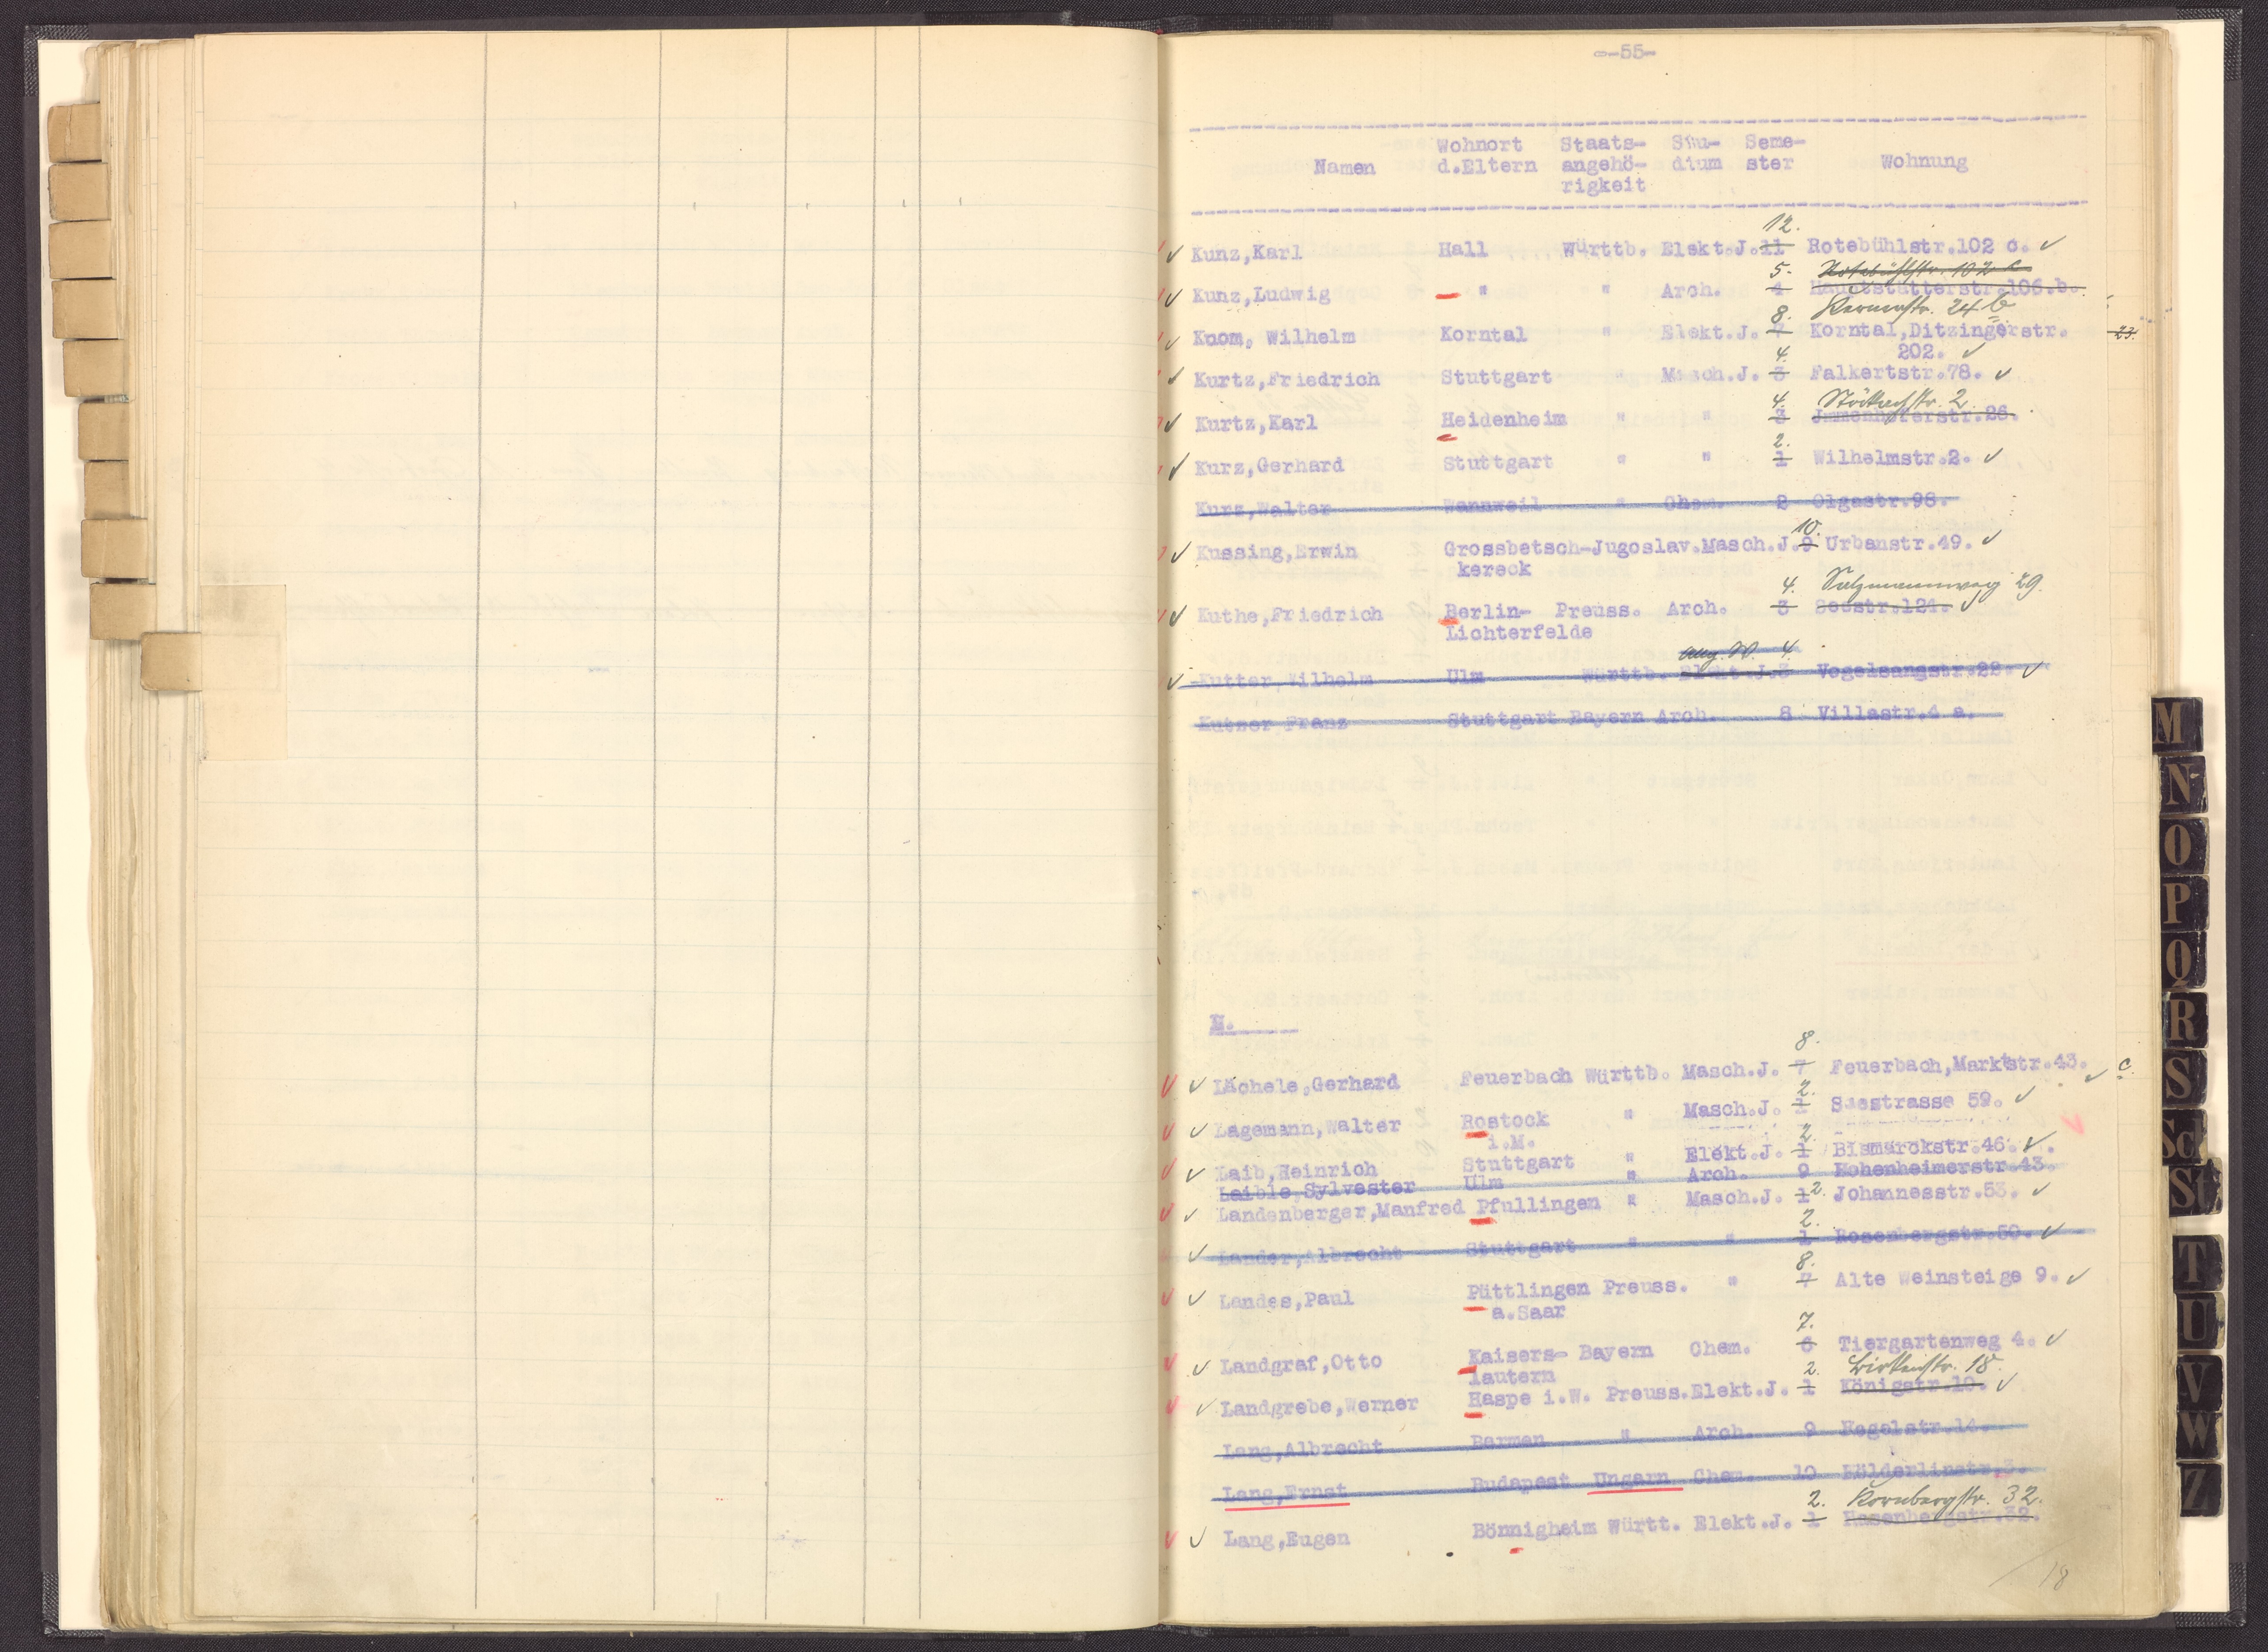 -55-
Wohnort Staats- Stu- Seme-
Namen d.Eltern angehö- dium ster Wohnung
rigkeit
12.
Kunz,Karl Hall Württb. Elekt.J. 11 Rotebühlstr.102 c.
5. Rotebühlstr. 102 c
Kunz,Ludwig " " Arch. 4 Hauptstätterstr.106.b.
8. 24 b
Wilhelm Korntal " Elekt.J. 7 Korntal,Ditzingerstr. 23.
4. 202.
Kurtz,Friedrich Stuttgart " Masch.J. 3 Falkertstr.78.
4. Stöckachstr. 2.
Kurtz,Karl Heidenheim " " 3 Immenhoferstr.26.
2.
Kurz,Gerhard Stuttgart " " 1 Wilhelmstr.2.
Kurz,Walter Wannweil " Chem. 2 Olgastr.98.
10.
Kussing,Erwin Grossbetsch-Jugoslav.Masch.J. 9 Urbanstr.49.
kereck
4. Salzmannweg 29.
Kuthe,Friedrich Berlin- Preuss. Arch. 3 Seestr.121.
Lichterfelde
allg. W. 4.
Kutter,Wilhelm Ulm Württb. Elekt.J.3 Vogelsangstr.22.
Kutzer Franz Stuttgart Bayern Arch. 8 Villastr.4 a.
L.
8.
Lächele,Gerhard Feuerbach Württb. Masch.J. 7 Feuerbach,Marktstr.43. c.
2.
Lagemann,Walter Rostock " Masch.J. 1 Seestrasse 59.
i.M. 2.
Laib,Heinrich Stuttgart " Elekt.J. 1 Bismarckstr.46.
Laible,Sylvester Ulm " Arch. 9 Hohenheimerstr.43.
Landenberger,Manfred Pfullingen " Masch.J. 1 2. Johannesstr.53.
2.
Lander,Albrecht Stuttgart " " 1 Rosenbergstr.50.
8.
Landes,Paul Püttlingen Preuss. " 7 Alte Weinsteige 9.
a.Saar
7.
Landgraf,Otto Kaisers- Bayern Chem. 6 Tiergartenweg 4.
lautern 2. Birkenstr. 18.
Landgrebe,Werner Haspe i.W. Preuss.Elekt.J. 1 Königstr.10.
Lang,Albrecht Barmen " Arch. 9 Hegelstr.14.
Lang,Ernst Budapest Ungarn Chem. 10 Hölderlinstr.3.
2. Kornbergstr. 32.
Lang,Eugen Bönnigheim Württ. Elekt.J. 1 Rosenbergstr.32.
18
M
N
O
P
Q
R
S
Sch
St
T
U
V
W
Z